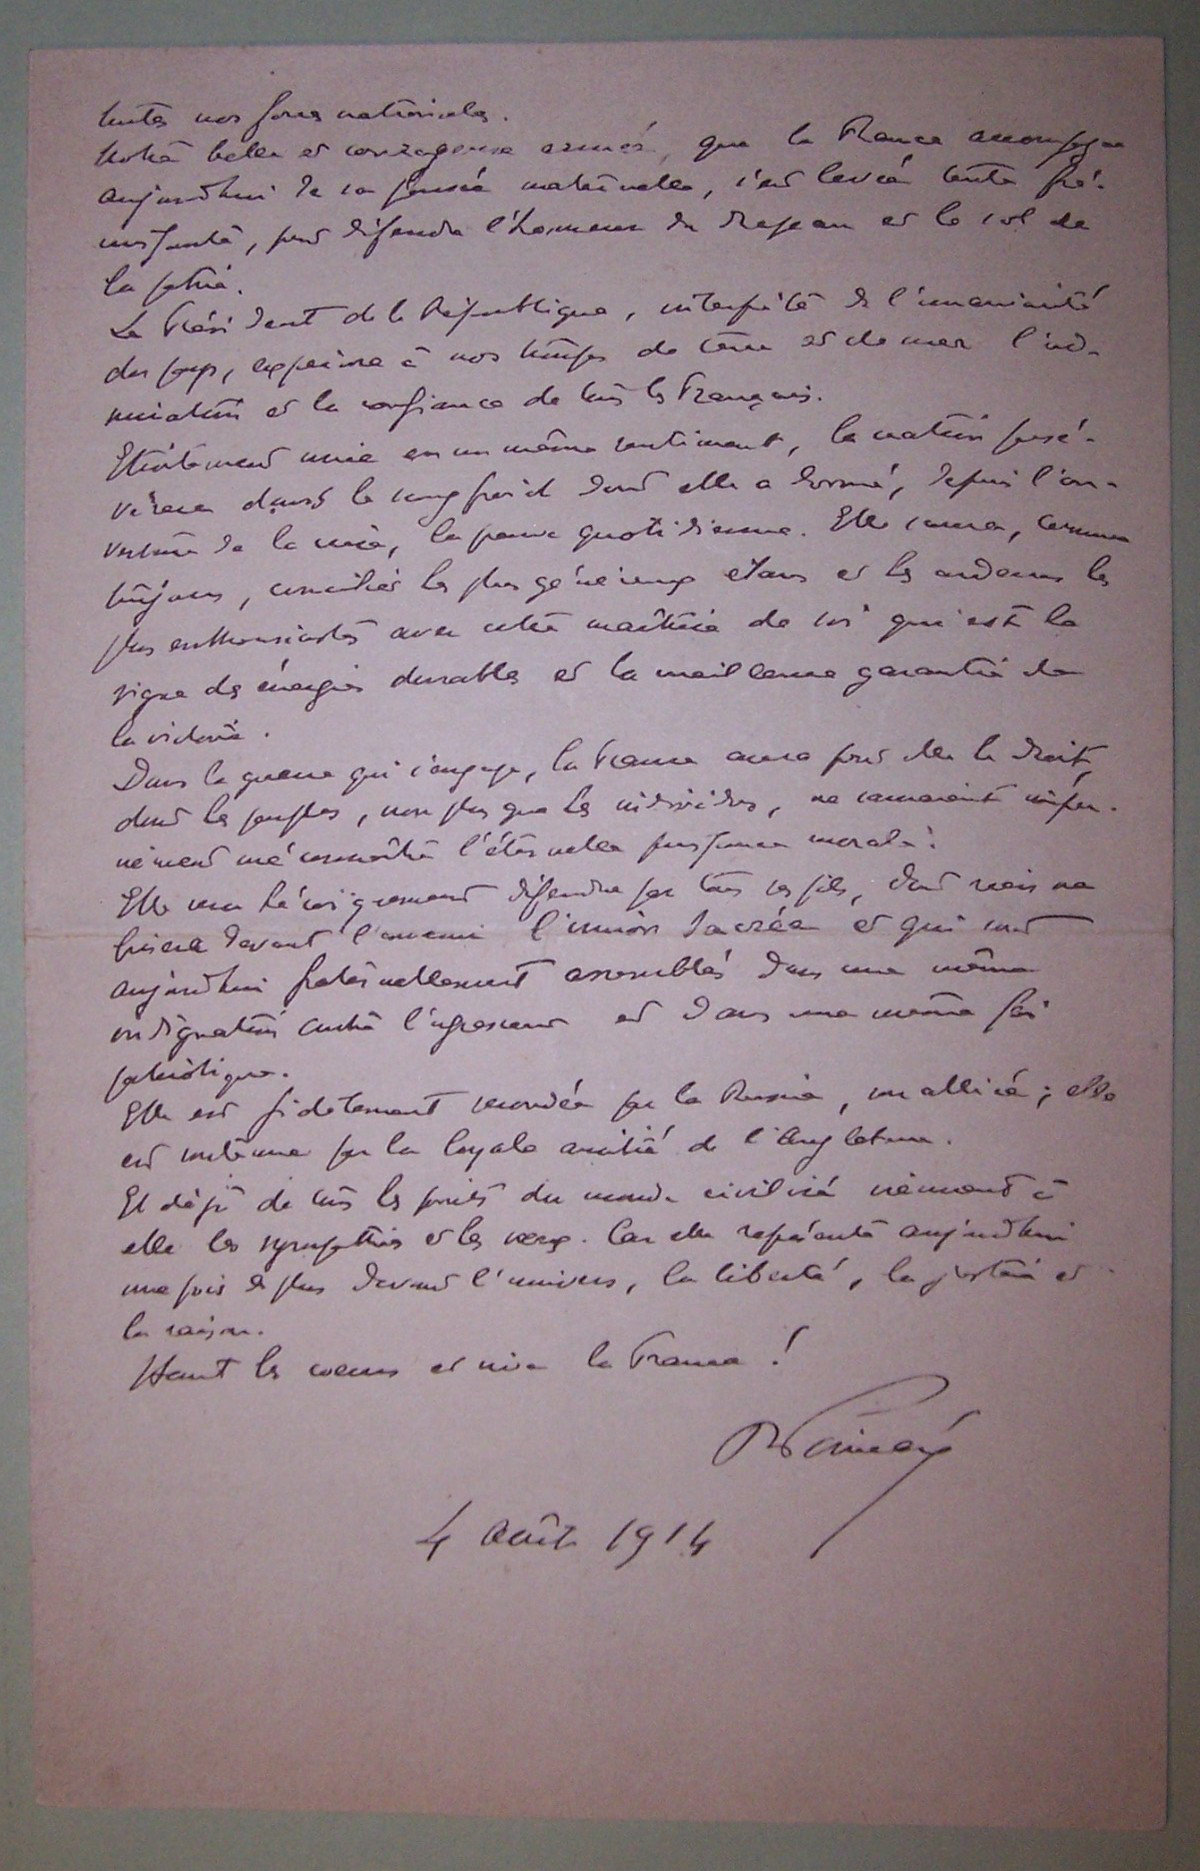 toutes nos forces nationales.
Notre belle et courageuse armée, que la France accompagne
aujourd'hui de sa pensée maternelle, s'est levée toute fré-
missante, pour défendre l'honneur du drapeau et le sol de
la patrie.
Le Président de la République, interprète de l'unanimité
du pays, exprime à nos troupes de terre et de mer l'ad-
miration et la confiance de tous les Français.
Etroitement unie en un même sentiment, la nation persé-
vèrera dans le sang froid dont elle a donné, depuis l'ou-
verture de la crise, la preuve quotidienne. Elle saura, comme
toujours, concilier les plus généreux élans et les ardeurs les
plus enthousiastes avec cette maîtrise de soi qui est le
signe des énergies durables et la meilleure garantie de
la victoire.
Dans la guerre qui s'engage, la France aura pour elle le droit,
dont les peuples, non plus que les individus, ne sauraient impu-
nément méconnaître l'éternelle puissance morale.
Elle sera héroïquement défendue par tous ses fils, dont rien ne
brisera devant l'ennemi l'union sacrée et qui sont
aujourd'hui fraternellement assemblés dans une même
indignation contre l'agresseur et dans une même foi
patriotique.
Elle est fidèlement secondée par la Russie, son alliée; elle
est soutenue par la loyale amitié de l'Angleterre.
Et déjà de tous les points du monde civilisé viennent à
elle les sympathies et les vœux. Car elle représente aujourd'hui
une fois de plus devant l'univers, la liberté, la justice et
la raison.
Haut les cœurs et vive la France!
R Poincaré
4 août 1914